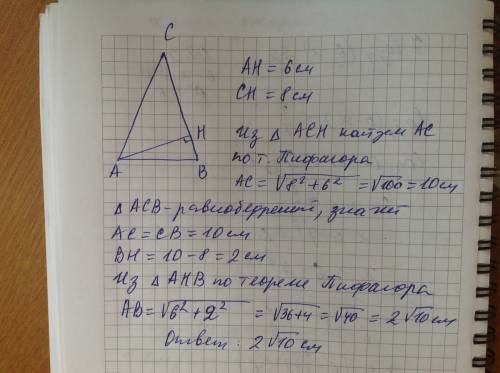 C
H
A
B
AH = 6 см
CH = 8 см
Из △ ACH найдем AC
по т. Пифагора
AC = √8² + 6² = √100 = 10 см
△ ACB - равнобедренный, значит
AC = CB = 10 см
BH = 10 - 8 = 2 см
Из △ AHB по теореме Пифагора
AB = √6² + 2² = √36+4 = √40 = 2√10 см
Ответ: 2√10 см